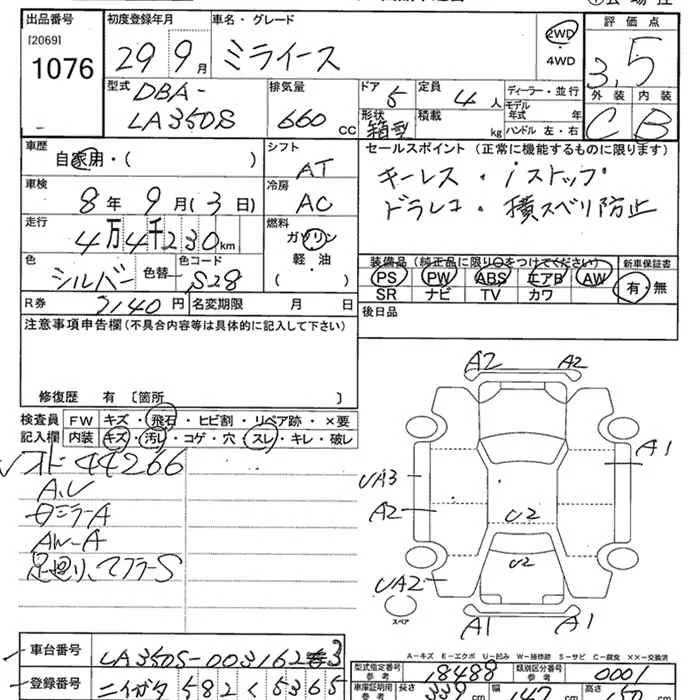 出品番号 初度登録年月 車名・グレード 評価点
[2069] 1076 29 9月 ミライース 2WD 4WD 3.5
型式 DBA-LA350S 排気量 660 CC
ドア 5 定員 4人 ディーラー・並行 外装 内装
形状 箱型 積載 kg モデル年式 年 ハンドル 左・右 C B
車歴 自家用・( ) シフト AT セールスポイント (正常に機能するものに限ります)
車検 8年 9月(3日) 冷房 AC キーレス・iストップ
走行 4万4千230km 燃料 ガソリン 軽・油 ( ) ドラレコ・横スベリ防止
色 シルバー 色替 色コード S28
装備品 (純正品に限り○をつけてください) 新車保証書
PS PW ABS エアB AW 有・無
SR ナビ TV カワ
R券 7140円 名変期限 月 日 後日品
注意事項申告欄 (不具合内容等は具体的に記入して下さい)
修復歴 有 〔箇所 〕
検査員 FW キズ・飛石・ヒビ割・リペア跡・×要
記入欄 内装 キズ・汚レ・コゲ・穴・スレ・キレ・破レ
44266
A.V
ロミラーA
AW-A
足廻り、マフラーS
A2 A2
A1
UA3
A2
U2
U2
UA2
スペア
A1 A1
A-キズ E-エクボ U-凹み W-補修跡 S-サビ C-腐食 ××-交換済
車台番号 LA350S-0031623
型式指定番号 参考 18488 類別区分番号 参考 0001
登録番号 ニイガタ 582 く 5365
車庫証明用 参考 長さ 339cm 幅 147cm 高さ